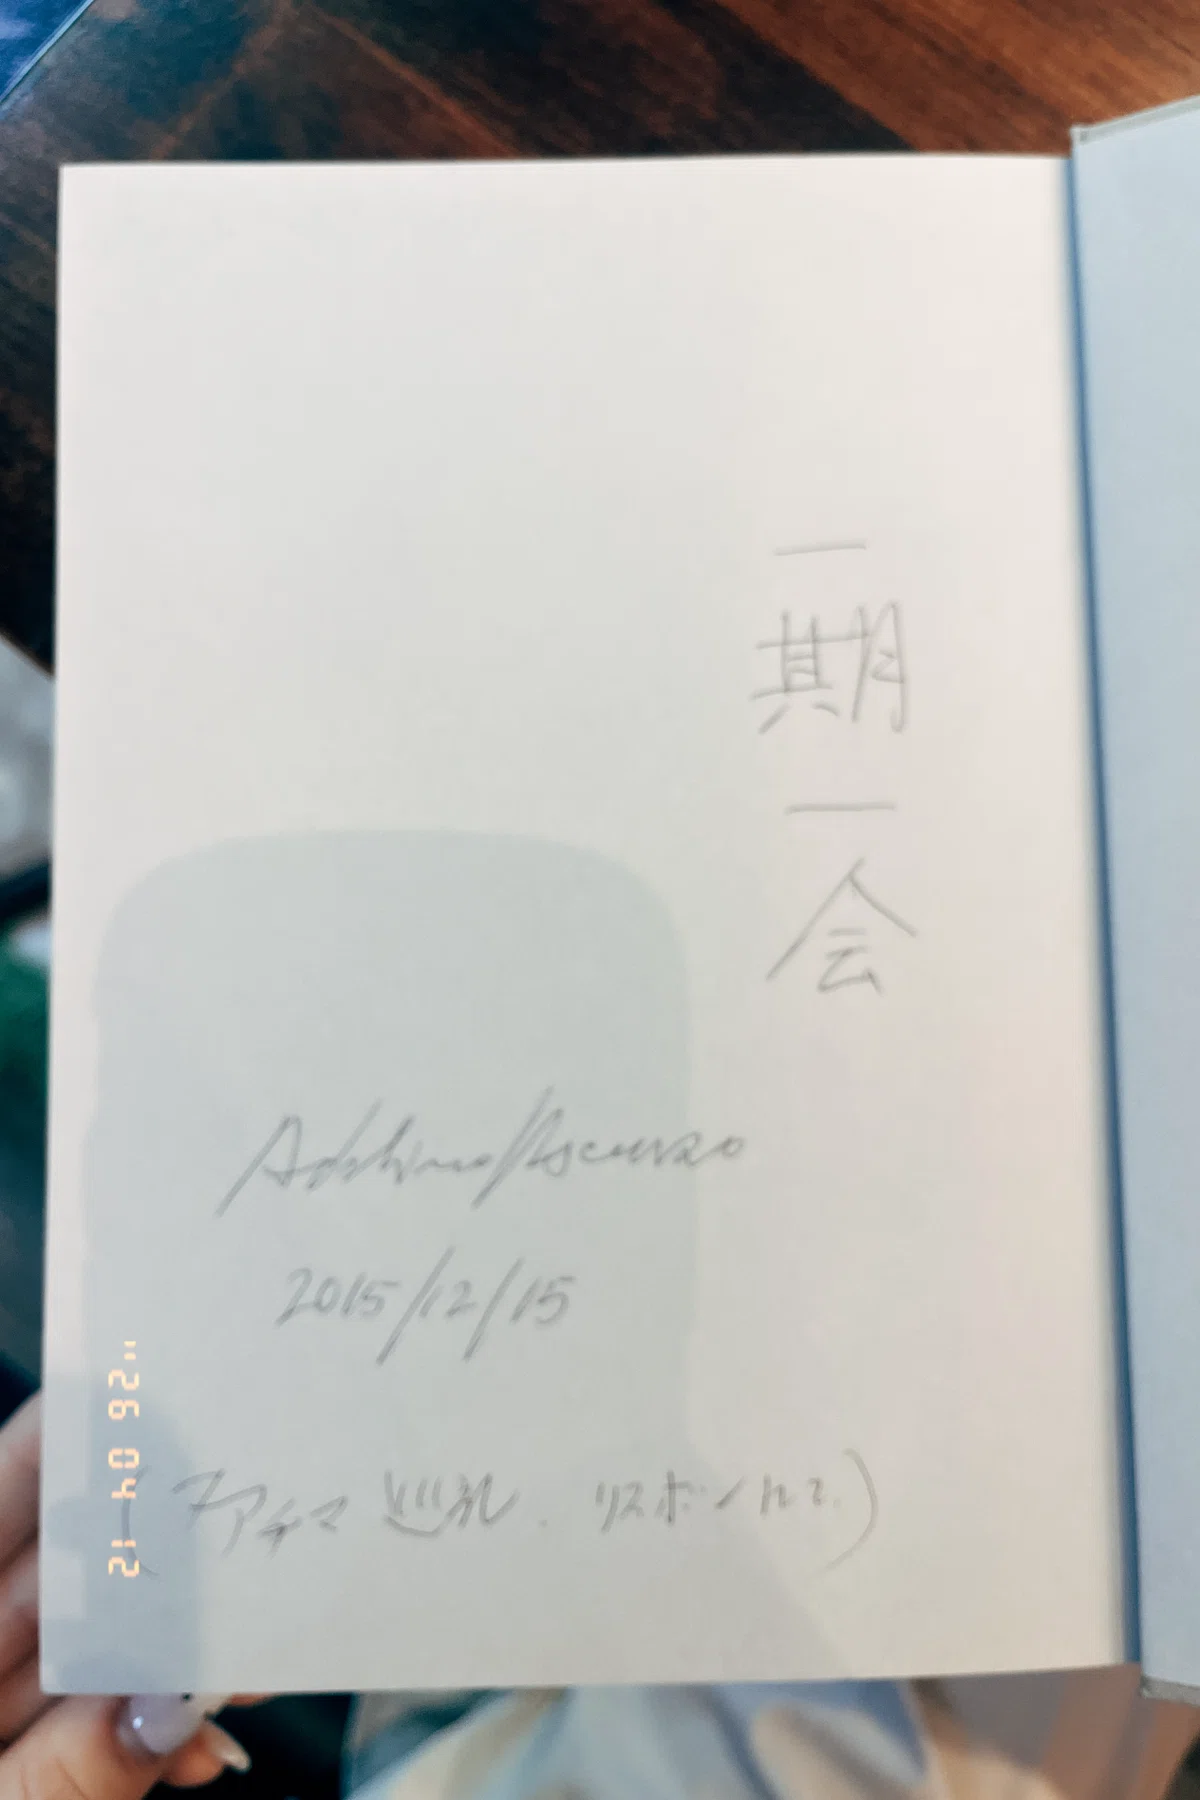 一期一会
2015/12/15
(ファチマ巡礼. リスボンにて.)
'26 04 12